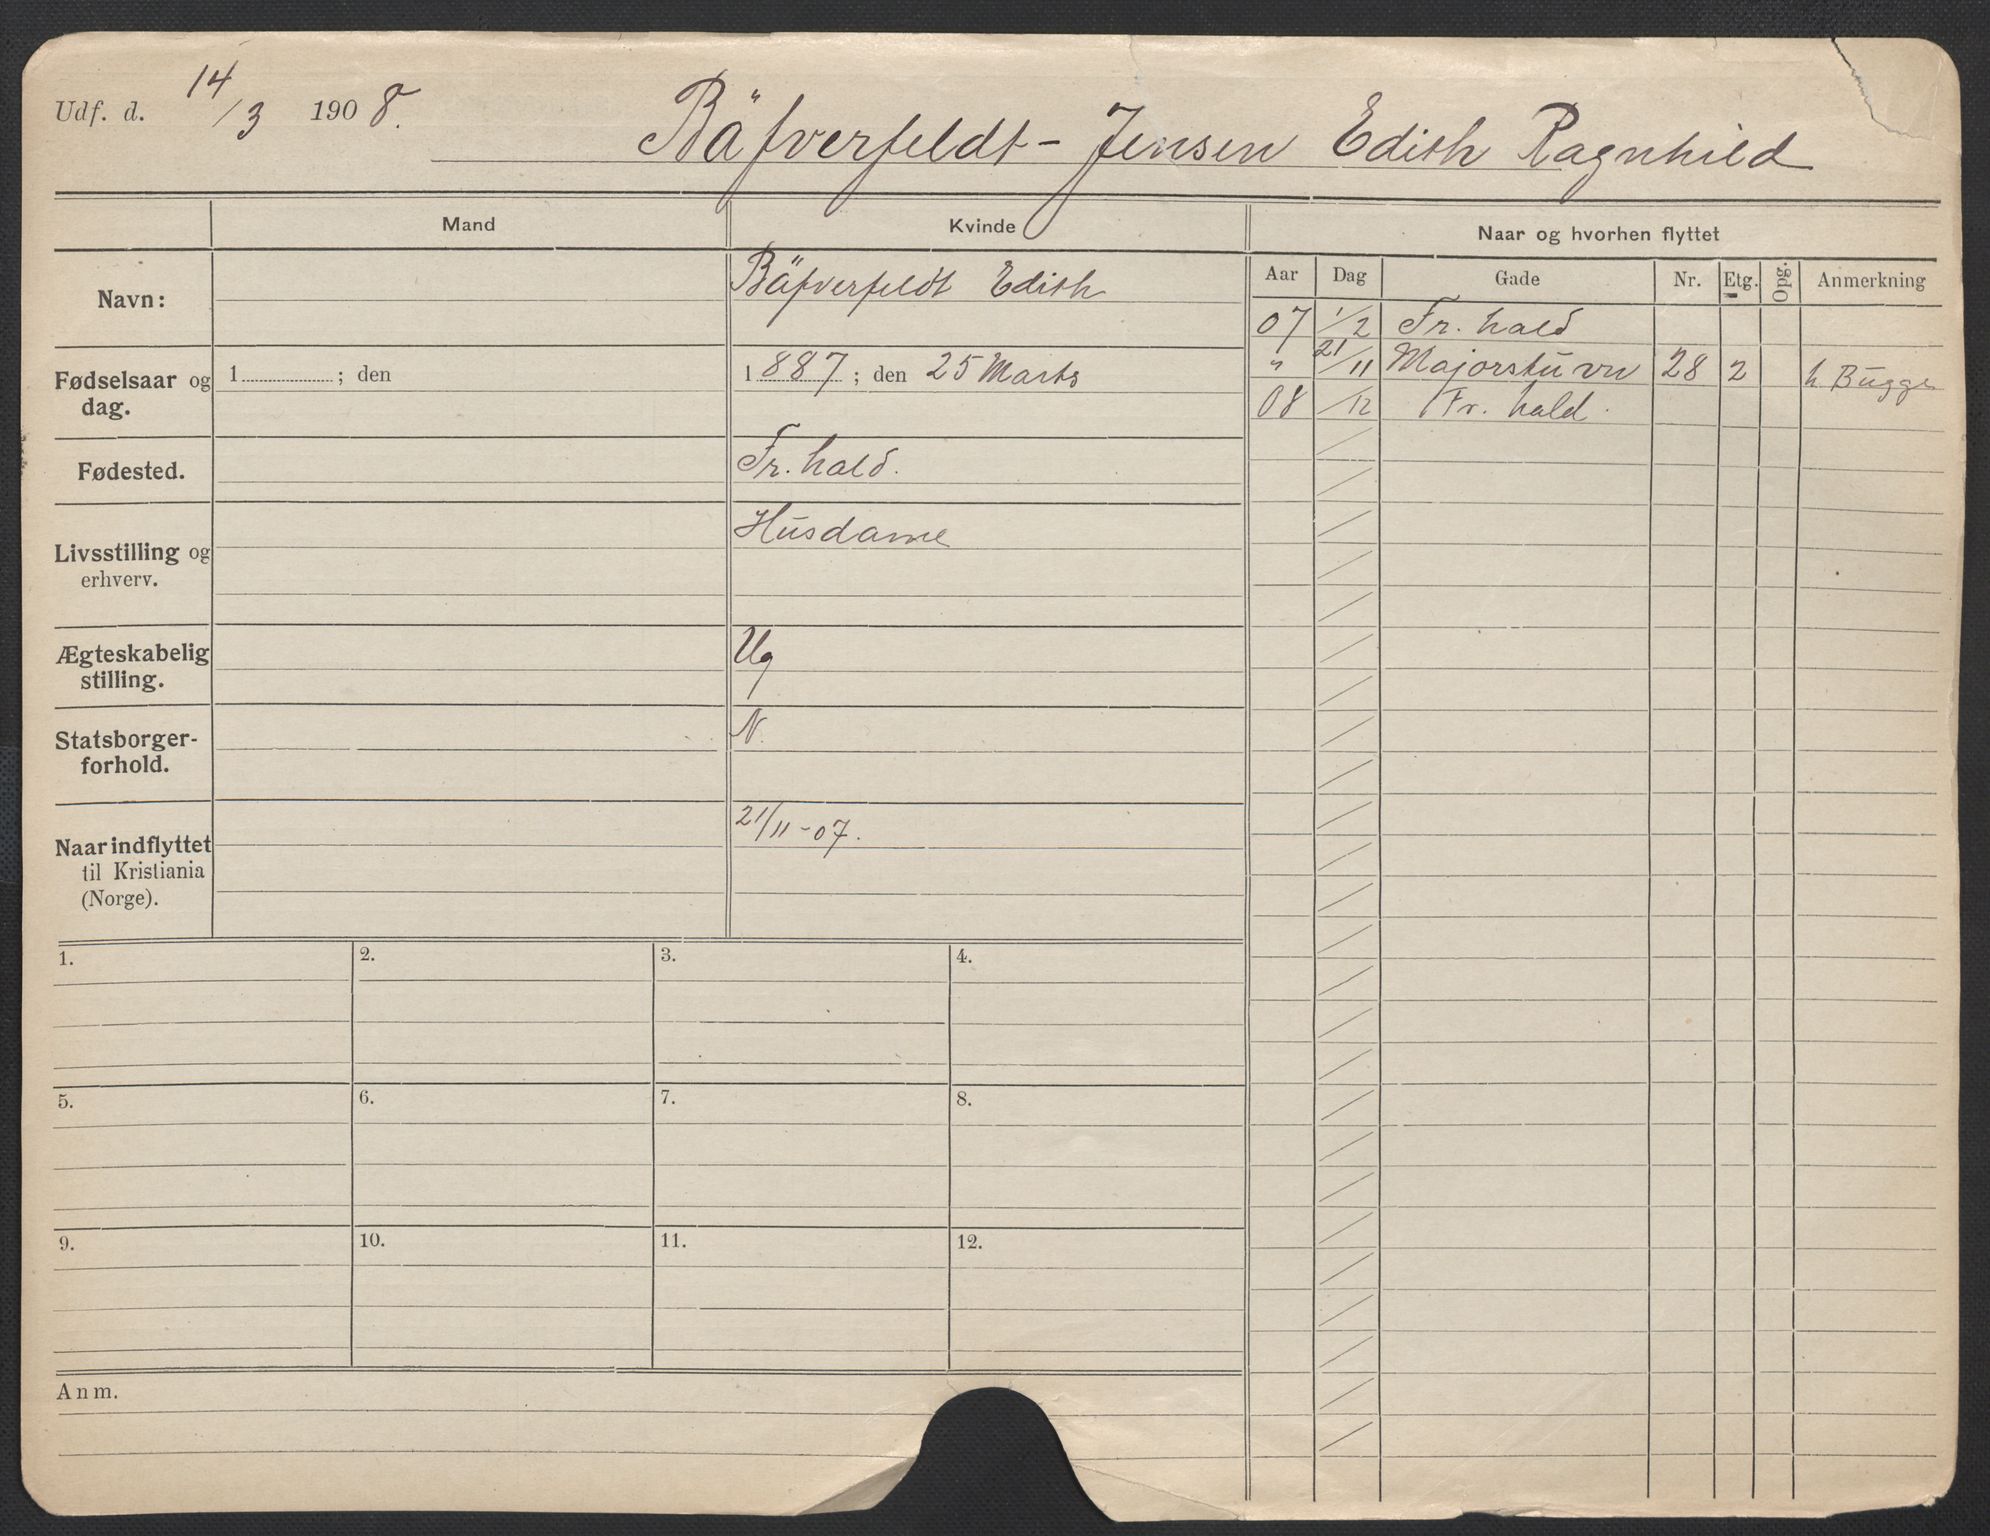 Udf. d. 14/3 1908.
Bäfverfeldt-Jensen Edith Ragnhild
Mand
Kvinde
Naar og hvorhen flyttet
Aar Dag Gade Nr. Etg. Opg. Anmerkning
Navn:
Bäfverfeldt Edith
07 1/2 Fr. hald
" 21/11 Majorstu vn 28 2 h Bugge
08 /12 Fr. hald.
Fødselsaar og
dag.
1 ; den
1887; den 25 Marts
Fødested.
Fr. hald.
Livsstilling og
erhverv.
Husdame
Ægteskabelig
stilling.
Ug
Statsborger-
forhold.
N.
Naar indflyttet
til Kristiania
(Norge).
21/11-07.
1. 2. 3. 4.
5. 6. 7. 8.
9. 10. 11. 12.
Anm.